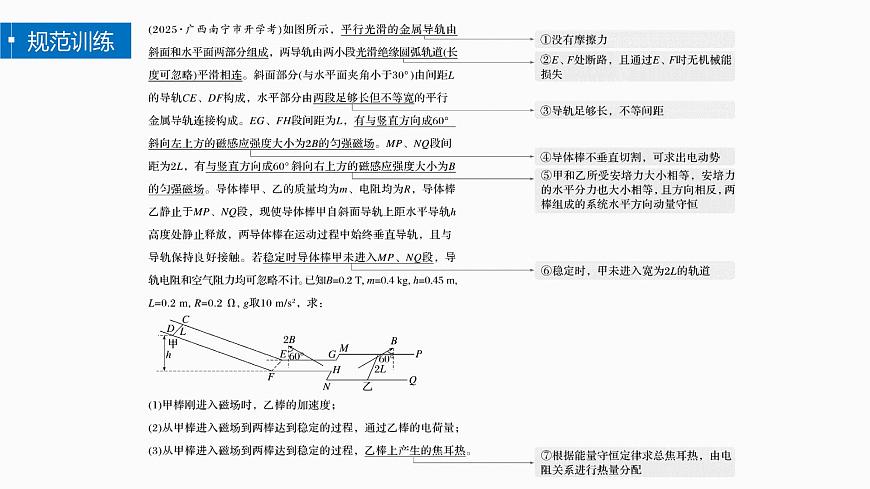 规范训练
(2025·广西南宁市开学考)如图所示，平行光滑的金属导轨由
斜面和水平面两部分组成，两导轨由两小段光滑绝缘圆弧轨道(长
度可忽略)平滑相连。斜面部分(与水平面夹角小于30°)由间距L
的导轨CE、DF构成，水平部分由两段足够长但不等宽的平行
金属导轨连接构成。EG、FH段间距为L，有与竖直方向成60°
斜向左上方的磁感应强度大小为2B的匀强磁场。MP、NQ段间
距为2L，有与竖直方向成60°斜向右上方的磁感应强度大小为B
的匀强磁场。导体棒甲、乙的质量均为m、电阻均为R，导体棒
乙静止于MP、NQ段，现使导体棒甲自斜面导轨上距水平导轨h
高度处静止释放，两导体棒在运动过程中始终垂直导轨，且与
导轨保持良好接触。若稳定时导体棒甲未进入MP、NQ段，导
轨电阻和空气阻力均可忽略不计。已知B=0.2 T, m=0.4 kg, h=0.45 m,
L=0.2 m, R=0.2 Ω, g取10 m/s²，求：
①没有摩擦力
②E、F处断路，且通过E、F时无机械能
损失
③导轨足够长，不等间距
④导体棒不垂直切割，可求出电动势
⑤甲和乙所受安培力大小相等，安培力
的水平分力也大小相等，且方向相反，两
棒组成的系统水平方向动量守恒
⑥稳定时，甲未进入宽为2L的轨道
C
D L
甲
h
E
F
2B
60°
G
M
H
N
B
60°
2L
P
乙
Q
(1)甲棒刚进入磁场时，乙棒的加速度；
(2)从甲棒进入磁场到两棒达到稳定的过程，通过乙棒的电荷量；
(3)从甲棒进入磁场到两棒达到稳定的过程，乙棒上产生的焦耳热。
⑦根据能量守恒定律求总焦耳热，由电
阻关系进行热量分配